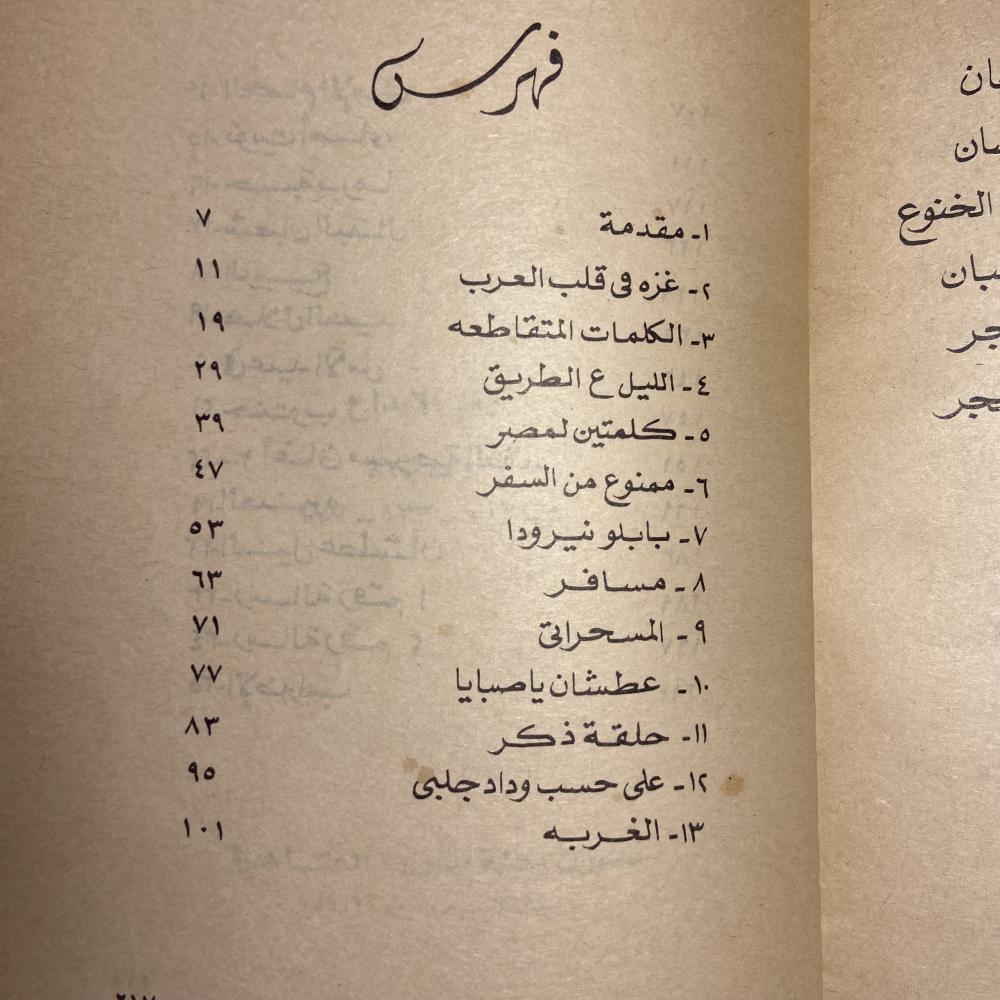 فهرس
١ـ مقدمة ٧
٢ـ غزه فى قلب العرب ١١
٣ـ الكلمات المتقاطعه ١٩
٤ـ الليل ع الطريق ٢٩
٥ـ كلمتين لمصر ٣٩
٦ـ ممنوع من السفر ٤٧
٧ـ بابلو نيرودا ٥٣
٨ـ مسافر ٦٣
٩ـ المسحراتى ٧١
١٠ـ عطشان ياصبايا ٧٧
١١ـ حلقة ذكر ٨٣
١٢ـ على حسب وداد جلبى ٩٥
١٣ـ الغربه ١٠١
الخنوع